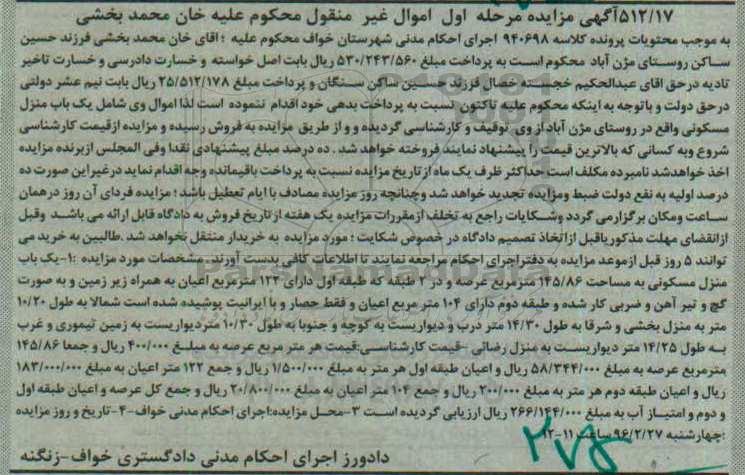 ۵۱۲/۱۷آگهی مزایده مرحله اول اموال غیر منقول محکوم علیه خان محمد بخشی
به موجب محتویات پرونده کلاسه ۹۴۰۶۹۸ اجرای احکام مدنی شهرستان خواف محکوم علیه ؛ اقای خان محمد بخشی فرزند حسین
ساکن روستای مژن آباد محکوم است به پرداخت مبلغ ۵۳۰/۲۴۳/۵۶۰ ریال بابت اصل خواسته و خسارت دادرسی و خسارت تاخیر
تادیه درحق اقای عبدالحکیم خجسته خصال فرزند حسین ساکن سنگان و پرداخت مبلغ ۲۵/۵۱۲/۱۷۸ ریال بابت نیم عشر دولتی
درحق دولت و باتوجه به اینکه محکوم علیه تاکنون نسبت به پرداخت بدهی خود اقدام ننموده است لذا اموال وی شامل یک باب منزل
مسکونی واقع در روستای مژن آباد از وی توقیف و کارشناسی گردیده و و از طریق مزایده به فروش رسیده و مزایده از قیمت کارشناسی
شروع وبه کسانی که بالاترین قیمت را پیشنهاد نمایند فروخته خواهد شد . ده درصد مبلغ پیشنهادی نقدا وفی المجلس از برنده مزایده
اخذ خواهدشد نامبرده مکلف است حداکثر ظرف یک ماه از تاریخ مزایده نسبت به پرداخت باقیمانده وجه اقدام نماید درغیر این صورت ده
درصد اولیه به نفع دولت ضبط ومزایده تجدید خواهد شد وچنانچه روز مزایده مصادف با ایام تعطیل باشد ؛ مزایده فردای آن روز درهمان
ساعت ومکان برگزار می گردد وشکایات راجع به تخلف از مقررات مزایده یک هفته از تاریخ فروش به دادگاه قابل ارائه می باشد وقبل
از انقضای مهلت مذکور یاقبل از اتخاذ تصمیم دادگاه در خصوص شکایت ؛ مورد مزایده به خریدار منتقل نخواهد شد .طالبین به خرید می
توانند ۵ روز قبل از موعد مزایده به دفتر اجرای احکام مراجعه نمایند تا اطلاعات کافی بدست آورند. مشخصات مورد مزایده :۱-یک باب
منزل مسکونی به مساحت ۱۴۵/۸۶ مترمربع عرصه و در ۲ طبقه که طبقه اول دارای ۱۲۲ مترمربع اعیان به همراه زیر زمین و به صورت
گچ و تیر آهن و ضربی کار شده و طبقه دوم دارای ۱۰۴ متر مربع اعیان و فقط حصار و با ایرانیت پوشیده شده است شمالا به طول ۱۰/۲۰
متر به منزل بخشی و شرقا به طول ۱۴/۳۰ متر درب و دیواریست به کوچه و جنوبا به طول ۱۰/۳۰ متر دیواریست به زمین تیموری و غرب
به طول ۱۴/۲۵ متر دیواریست به منزل رضائی -قیمت کارشناسی:قیمت هر متر مربع عرصه به مبلغ ۴۰۰/۰۰۰ ریال و جمعا ۱۴۵/۸۶
مترمربع عرصه به مبلغ ۵۸/۳۴۴/۰۰۰ ریال و اعیان طبقه اول هر متر به مبلغ ۱/۵۰۰/۰۰۰ ریال و جمع ۱۲۲ متر اعیان به مبلغ ۱۸۳/۰۰۰/۰۰۰
ریال و اعیان طبقه دوم هر متر به مبلغ ۲۰۰/۰۰۰ ریال و جمع ۱۰۴ متر اعیان به مبلغ ۲۰/۸۰۰/۰۰۰ ریال و جمع کل عرصه و اعیان طبقه اول
و دوم و امتیاز آب به مبلغ ۲۶۶/۱۴۴/۰۰۰ ریال ارزیابی گردیده است ۳-محل مزایده:اجرای احکام مدنی خواف-۴-تاریخ و روز مزایده
:چهارشنبه ۹۶/۲/۲۷ ساعت ۱۱-۱۲
دادورز اجرای احکام مدنی دادگستری خواف-زنگنه
ParsNamadData